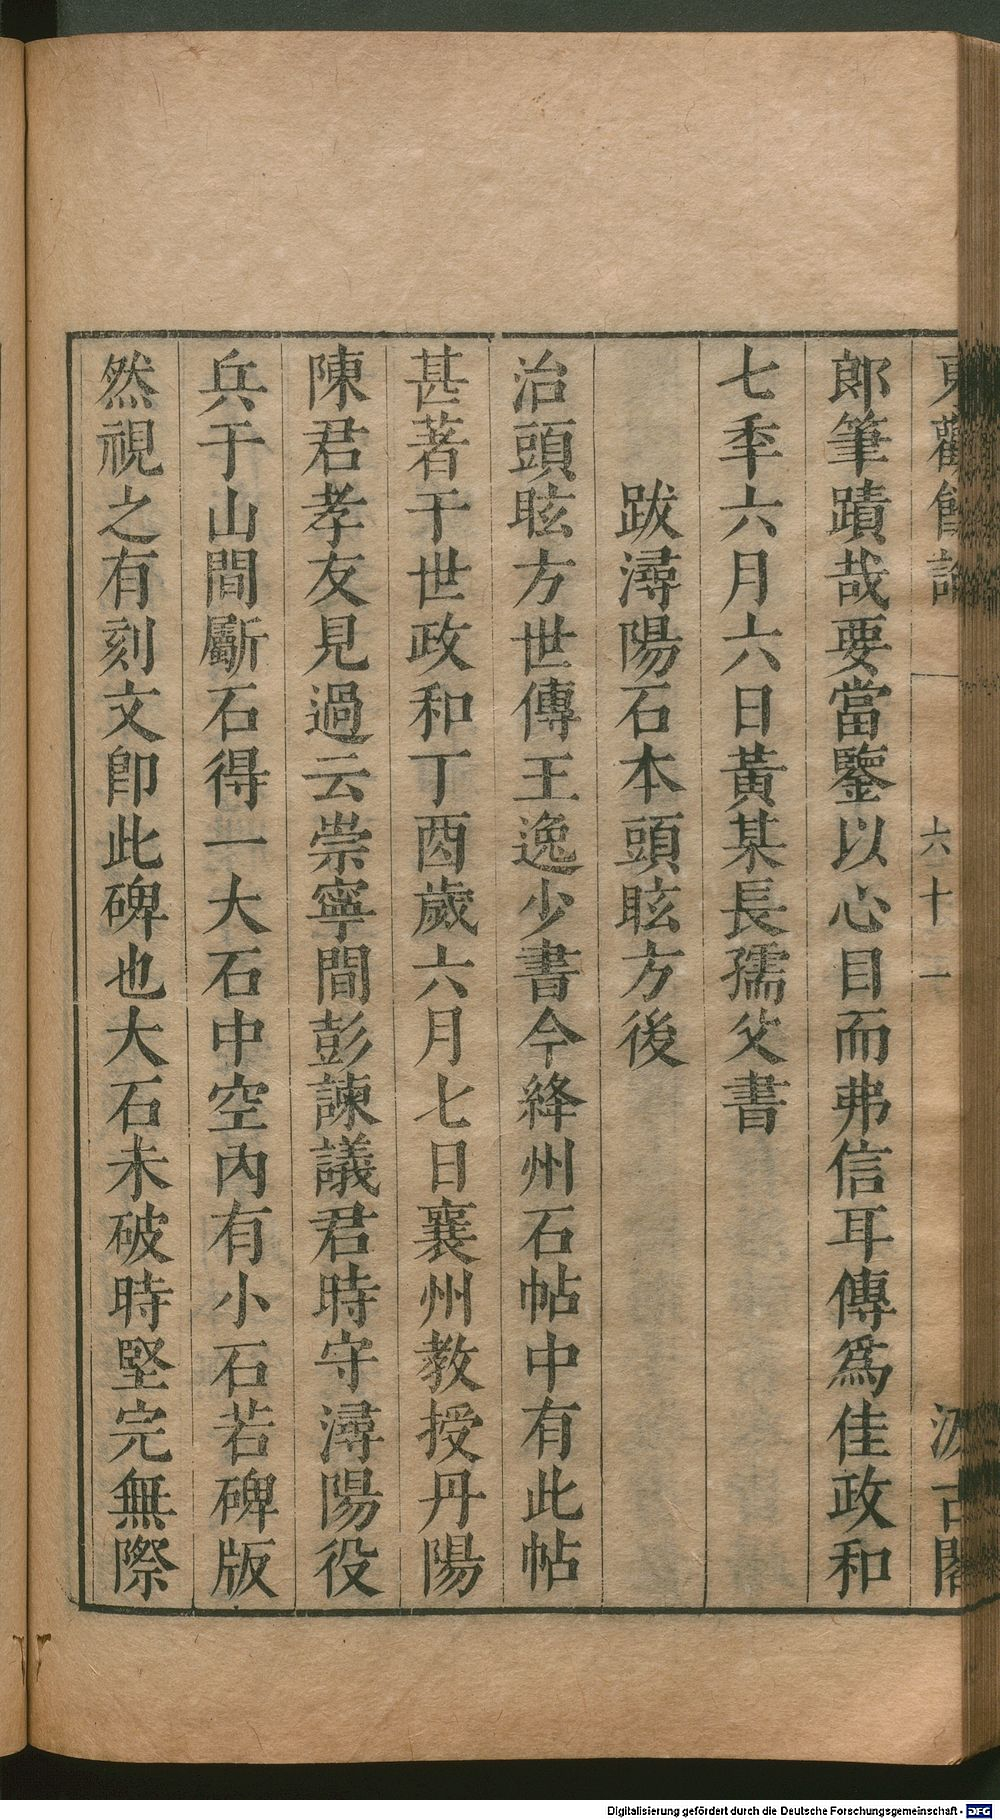 東觀餘論
六十一
汲古閣
郎筆蹟哉要當鑒以心目而弗信耳傳爲佳政和
七秊六月六日黃某長孺父書
跋潯陽石本頭眩方後
治頭眩方世傳王逸少書今絳州石帖中有此帖
甚著于世政和丁酉歲六月七日襄州教授丹陽
陳君孝友見過云崇寧間彭諫議君時守潯陽役
兵于山間斸石得一大石中空內有小石若碑版
然視之有刻文卽此碑也大石未破時堅完無際
Digitalisierung gefördert durch die Deutsche Forschungsgemeinschaft - DFG